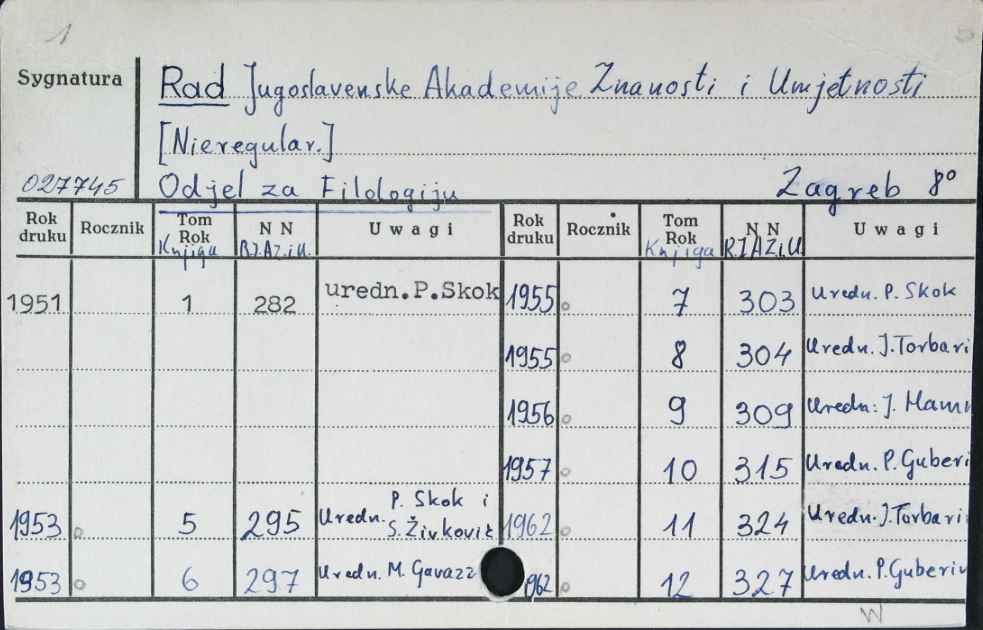 1
Sygnatura
Rad Jugoslavenske Akademije Znanosti i Umjetnosti
[Nieregular.]
027745 Odjel za Filologiju Zagreb 8°
Rok druku Rocznik Tom Rok Knjiga N N R.J.AZ.i.U. Uwagi Rok druku Rocznik Tom Rok Knjiga N N R.J.AZ.i.U. Uwagi
1951 1 282 uredn.P.Skok 1955 7 303 Uredn. P. Skok
1955 8 304 Uredn. J.Torbari
1956 9 309 Uredn: J. Hamm
1957 10 315 Uredn. P.Guberi
1953 5 295 Uredn. P. Skok i S. Živković 1962 11 324 Uredn. J.Torbari
1953 6 297 Uredn. M. Gavazz 1962 12 327 Uredn. P.Guberin
W